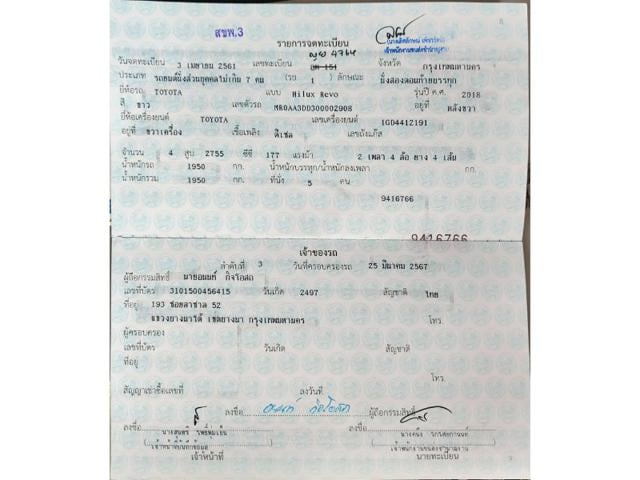 สขพ.3
รายการจดทะเบียน
วันจดทะเบียน 3 เมษายน 2561 เลขทะเบียน 4764 จังหวัด กรุงเทพมหานคร
ประเภท รถยนต์นั่งส่วนบุคคลไม่เกิน 7 คน (รย 1 ) ลักษณะ นั่งสองตอนท้ายบรรทุก
ยี่ห้อรถ TOYOTA แบบ Hilux Revo รุ่นปี ค.ศ. 2018
สี ขาว เลขตัวรถ MR0AA3DD300002908 อยู่ที่ หลังขวา
ยี่ห้อเครื่องยนต์ TOYOTA เลขเครื่องยนต์ 1GD4412191
อยู่ที่ ขวาเครื่อง เชื้อเพลิง ดีเซล เลขถังแก๊ส
จำนวน 4 สูบ 2755 ซีซี 177 แรงม้า 2 เพลา 4 ล้อ ยาง 4 เส้น
น้ำหนักรถ 1950 กก. น้ำหนักบรรทุก/น้ำหนักลงเพลา กก.
น้ำหนักรวม 1950 กก. ที่นั่ง 5 คน
9416766
9416766
เจ้าของรถ
ลำดับที่ 3 วันที่ครอบครองรถ 25 มีนาคม 2567
ผู้ถือกรรมสิทธิ์
เลขที่บัตร 3101500456415 วันเกิด 2497 สัญชาติ ไทย
ที่อยู่ 193 ซอยสาธุ 52
กรุงเทพมหานคร โทร.
ผู้ครอบครอง
เลขที่บัตร วันเกิด สัญชาติ
ที่อยู่
โทร.
สัญญาเช่าซื้อเลขที่ ลงวันที่
ลงชื่อ ผู้ถือกรรมสิทธิ์
ลงชื่อ ลงชื่อ
เจ้าหน้าที่ นายทะเบียน